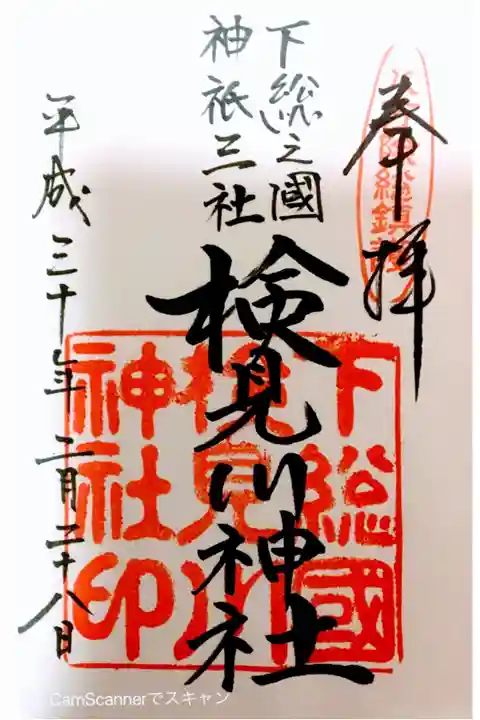 奉拝
下総之國
神祇三社
検見川神社
平成三十年二月二十八日
下総國
検見川
神社印
CamScannerでスキャン